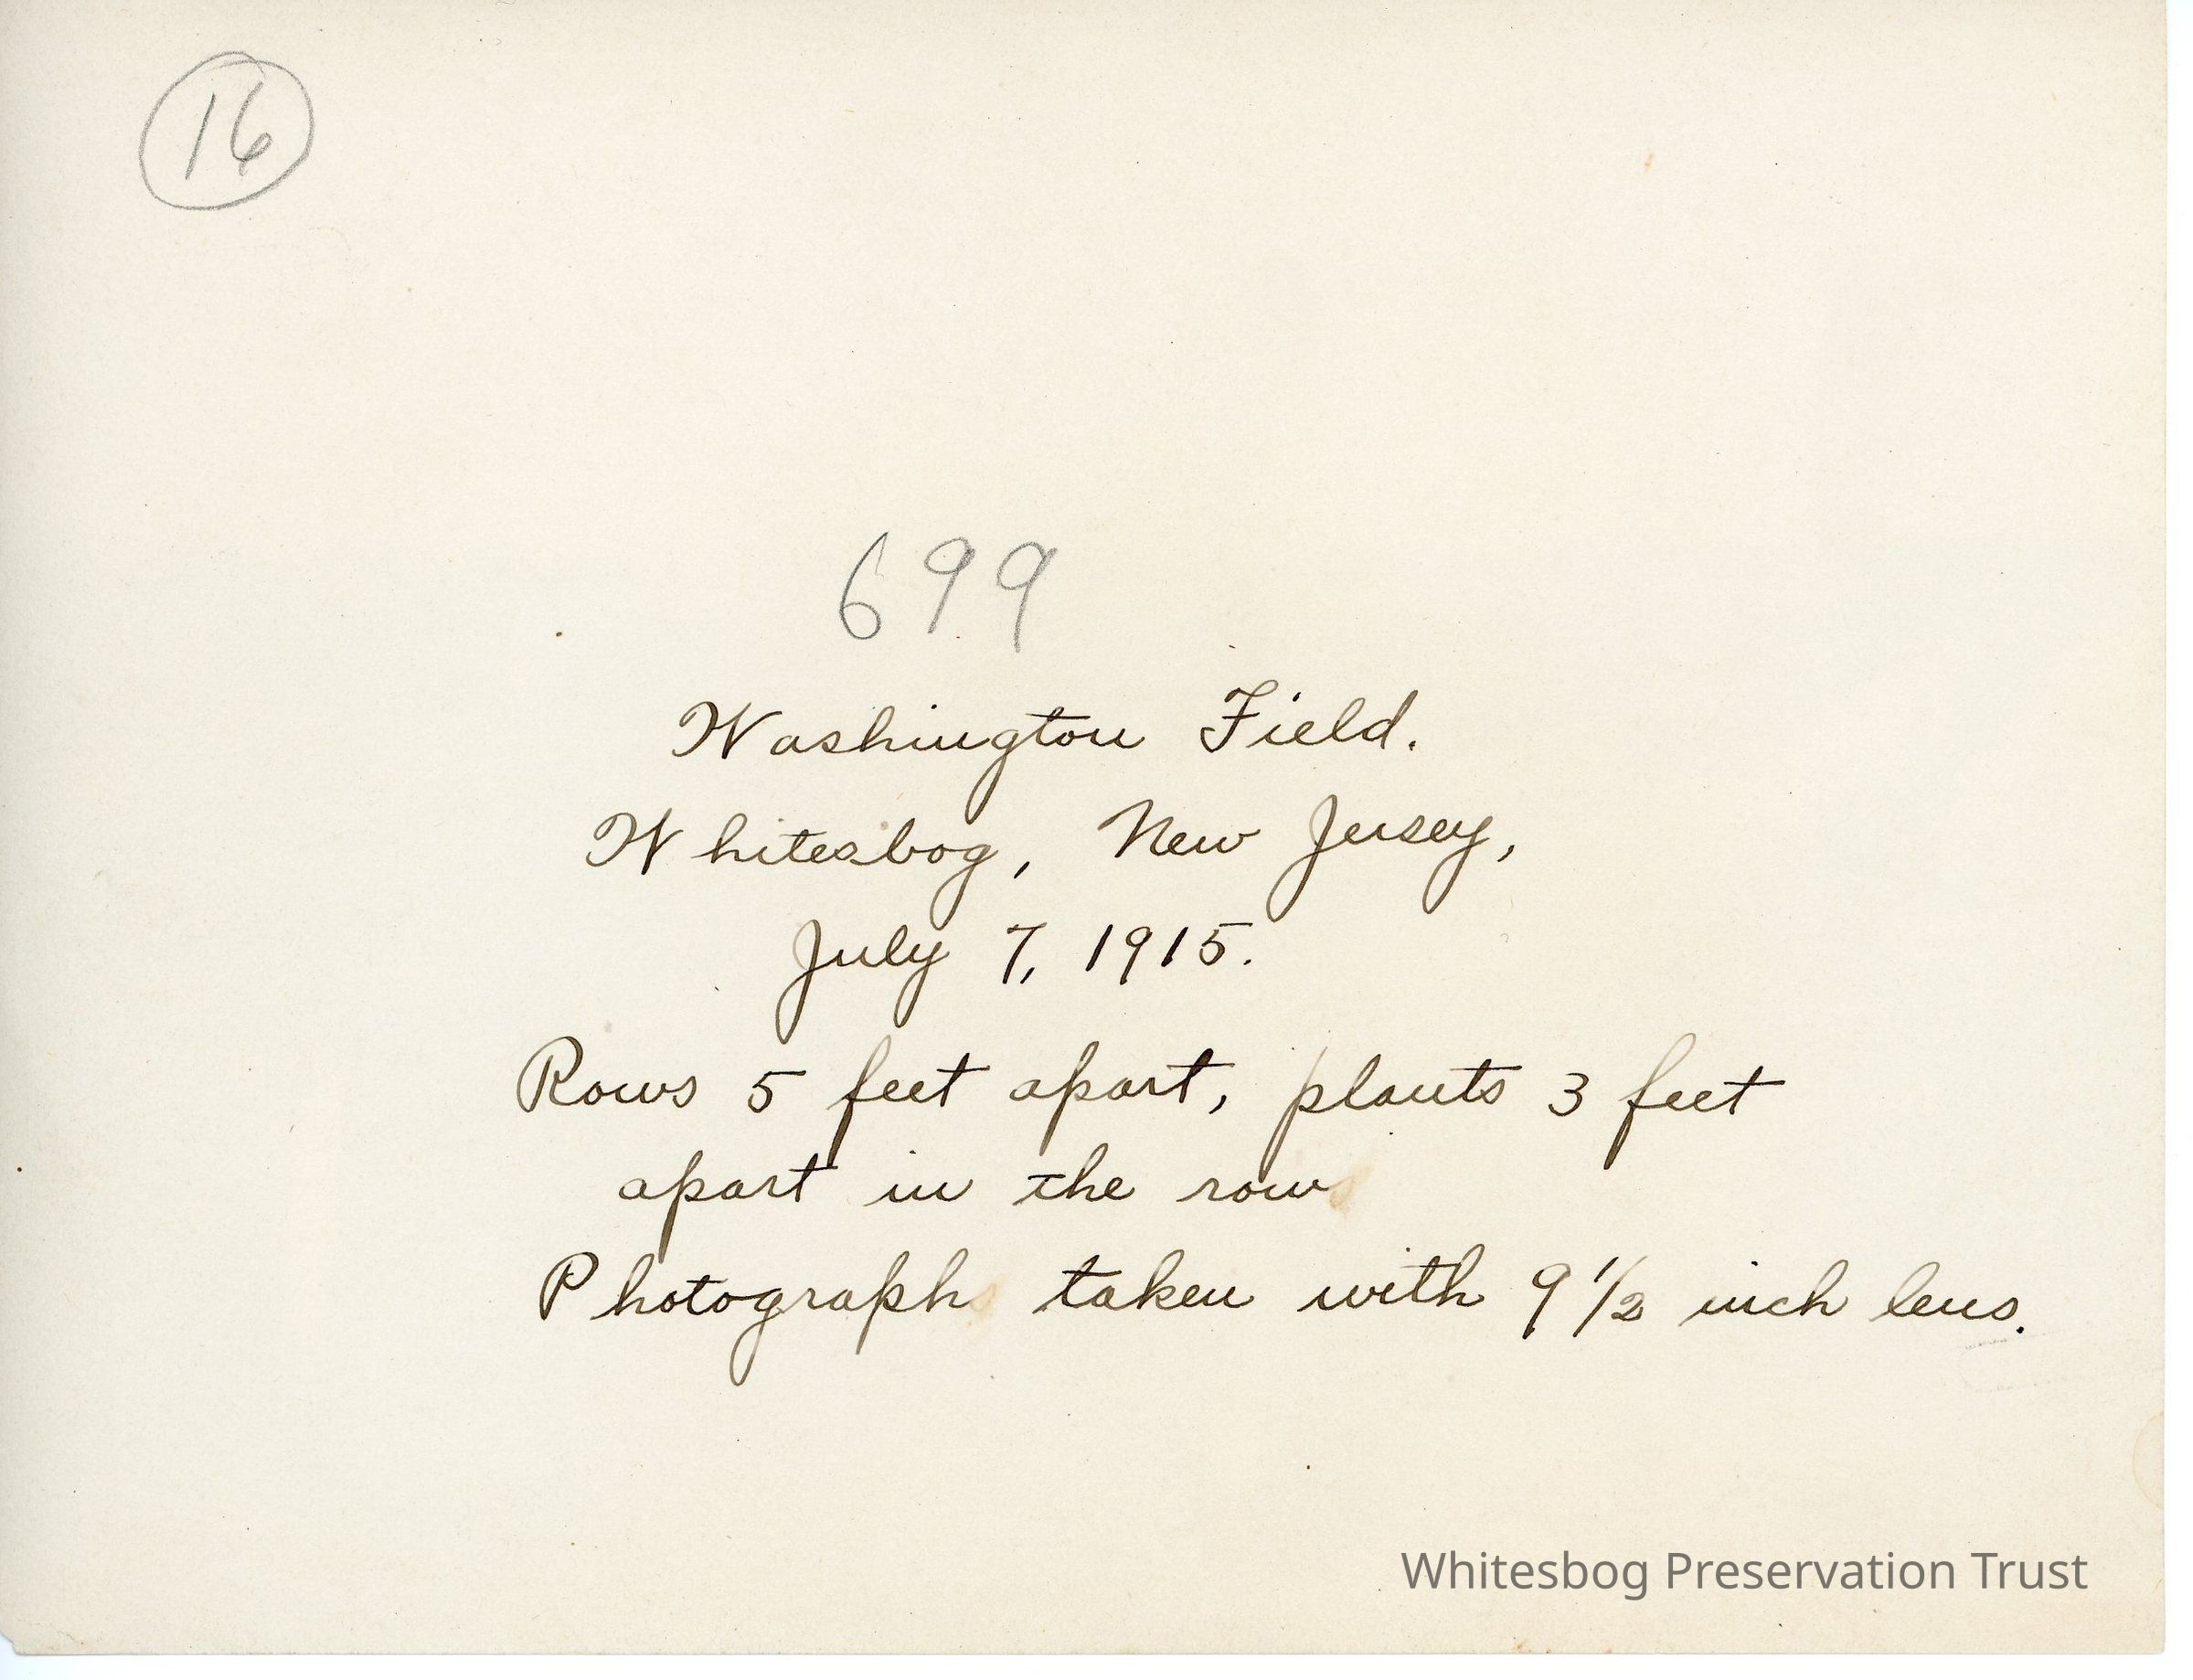 16
699
Washington Field.
Whitesbog, New Jersey,
July 7, 1915.
Rows 5 feet apart, plants 3 feet
apart in the row
Photograph taken with 9 1/2 inch lens.
Whitesbog Preservation Trust